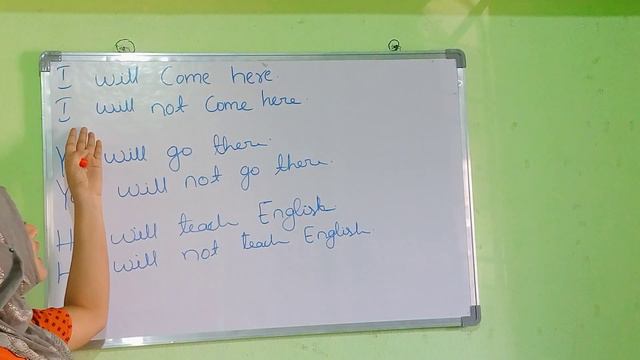 I will come here.
I will not come here.
will go there.
will not go there.
will teach English.
will not teach English.